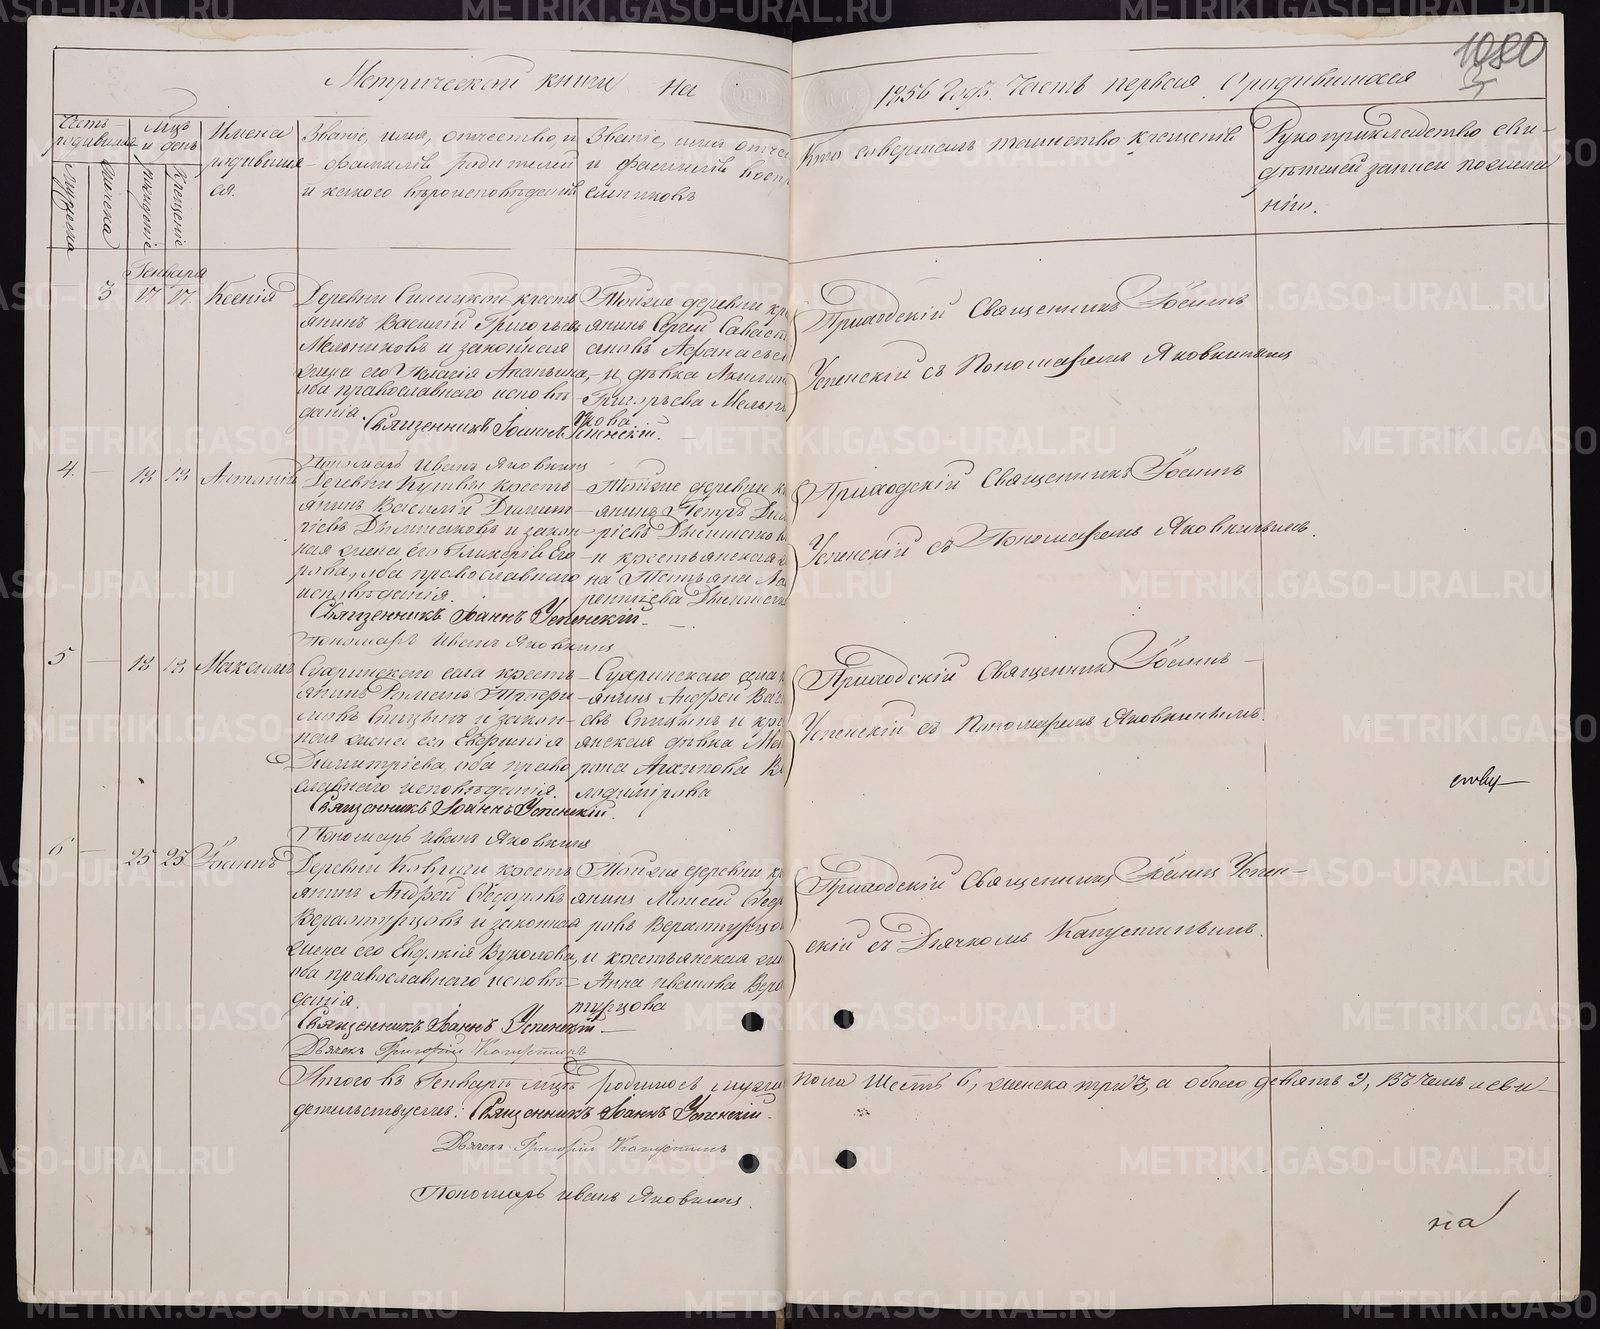 1080
Метрической книги на 1856 годъ. Часть первая. О родившихся
Мужеска
Женска
рожденіе
Крещеніе
Имена родившихся.
Званіе, имя, отчество, и
фамиліе родителей
и какого вѣроисповѣданія
Званіе, имя отче
и фамиліе восп
емниковъ
Кто совершалъ таинство крещенія
Рукоприкладство сви-
дѣтелей записи по жела
нію.
Генваря
3 17 17 Ксенія
Деревни Синицкой крестъ
янинъ Василій Григорьевъ
Мельниковъ и законная
жена его Пелагія Ананьина,
оба православнаго исповѣ
данія.
Священникъ Іоаннъ Успенскій.
Пономарь Иванъ Яковкинъ
Тойже деревни кр
янинъ Сергій Савast
ановъ Афанасьев
и дѣвка Акилин
Григорьева Мельни
кова
Приходскій Священникъ Іоаннъ
Успенскій съ Пономаремъ Яковкинымъ
4. 13 13 Антоній
янинъ Василій Димит
ріевъ
и закон
ная жена его Гликерія Его
рова, оба православнаго
исповѣданія.
Священникъ Іоаннъ Успенскій
Пономарь Иванъ Яковкинъ
Тойже деревни к
янинъ Петръ Дим
ріевъ
и крестьянская ж
на Татьяна Ла
рентиева
Приходскій Священникъ Іоаннъ
Успенскій съ Пономаремъ Яковкинымъ.
5 13 13 Максимъ
села кресть
янинъ Романъ Трофи
мовъ Спицынъ и закон
ная жена его Евфимія
Димитріева, оба право
славнаго исповѣданія.
Священникъ Іоаннъ Успенскій.
Пономарь Иванъ Яковкинъ
села к
янинъ Андрей Васи
евъ Спицынъ и кре
янская дѣвка Мат
рона Архипова В
лодимірова
Приходскій Священникъ Іоаннъ
Успенскій съ Пономаремъ Яковкинымъ.
6 25 25 Іоаннъ
Деревни Ковриги кресть
янинъ Андрей Ѳедоровъ
Верхотурцовъ и законная
жена его Евдокія Вуколова,
оба православнаго исповѣ
данія.
Священникъ Іоаннъ Успенскій
Дьячекъ Григорій Капустинъ
Тойже деревни кр
янинъ Моисей Ѳедо
ровъ Верхотурцо
и крестьянская же
Анна Иванова Верхо
турцова
Приходскій Священникъ Іоаннъ Успен-
скій съ Дьячкомъ Капустинымъ.
Итого въ Генварѣ мцѣ родилось мужеска пола шесть 6, женска три 3, а обоего девять 9, Въ чемъ и сви-
детельствуемъ: Священникъ Іоаннъ Успенскій.
Дьячекъ Григорій Капустинъ
Пономарь Иванъ Яковкинъ.
на
METRIKI.GASO-URAL.RU